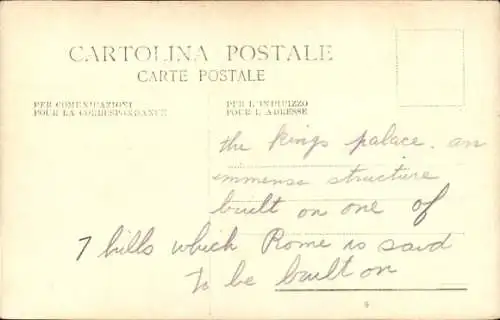 CARTOLINA POSTALE
CARTE POSTALE
PER COMUNICAZIONI
POUR LA CORRESPONDANCE
PER L'INDIRIZZO
POUR L'ADRESSE
the kings palace. an
immense structure
built on one of
7 hills which Rome is said
to be built on